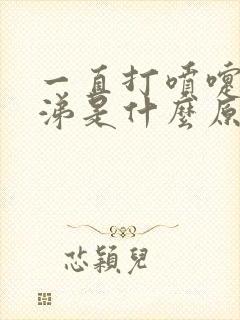 一直打噴嚏
涕是什麼原
芯穎兒